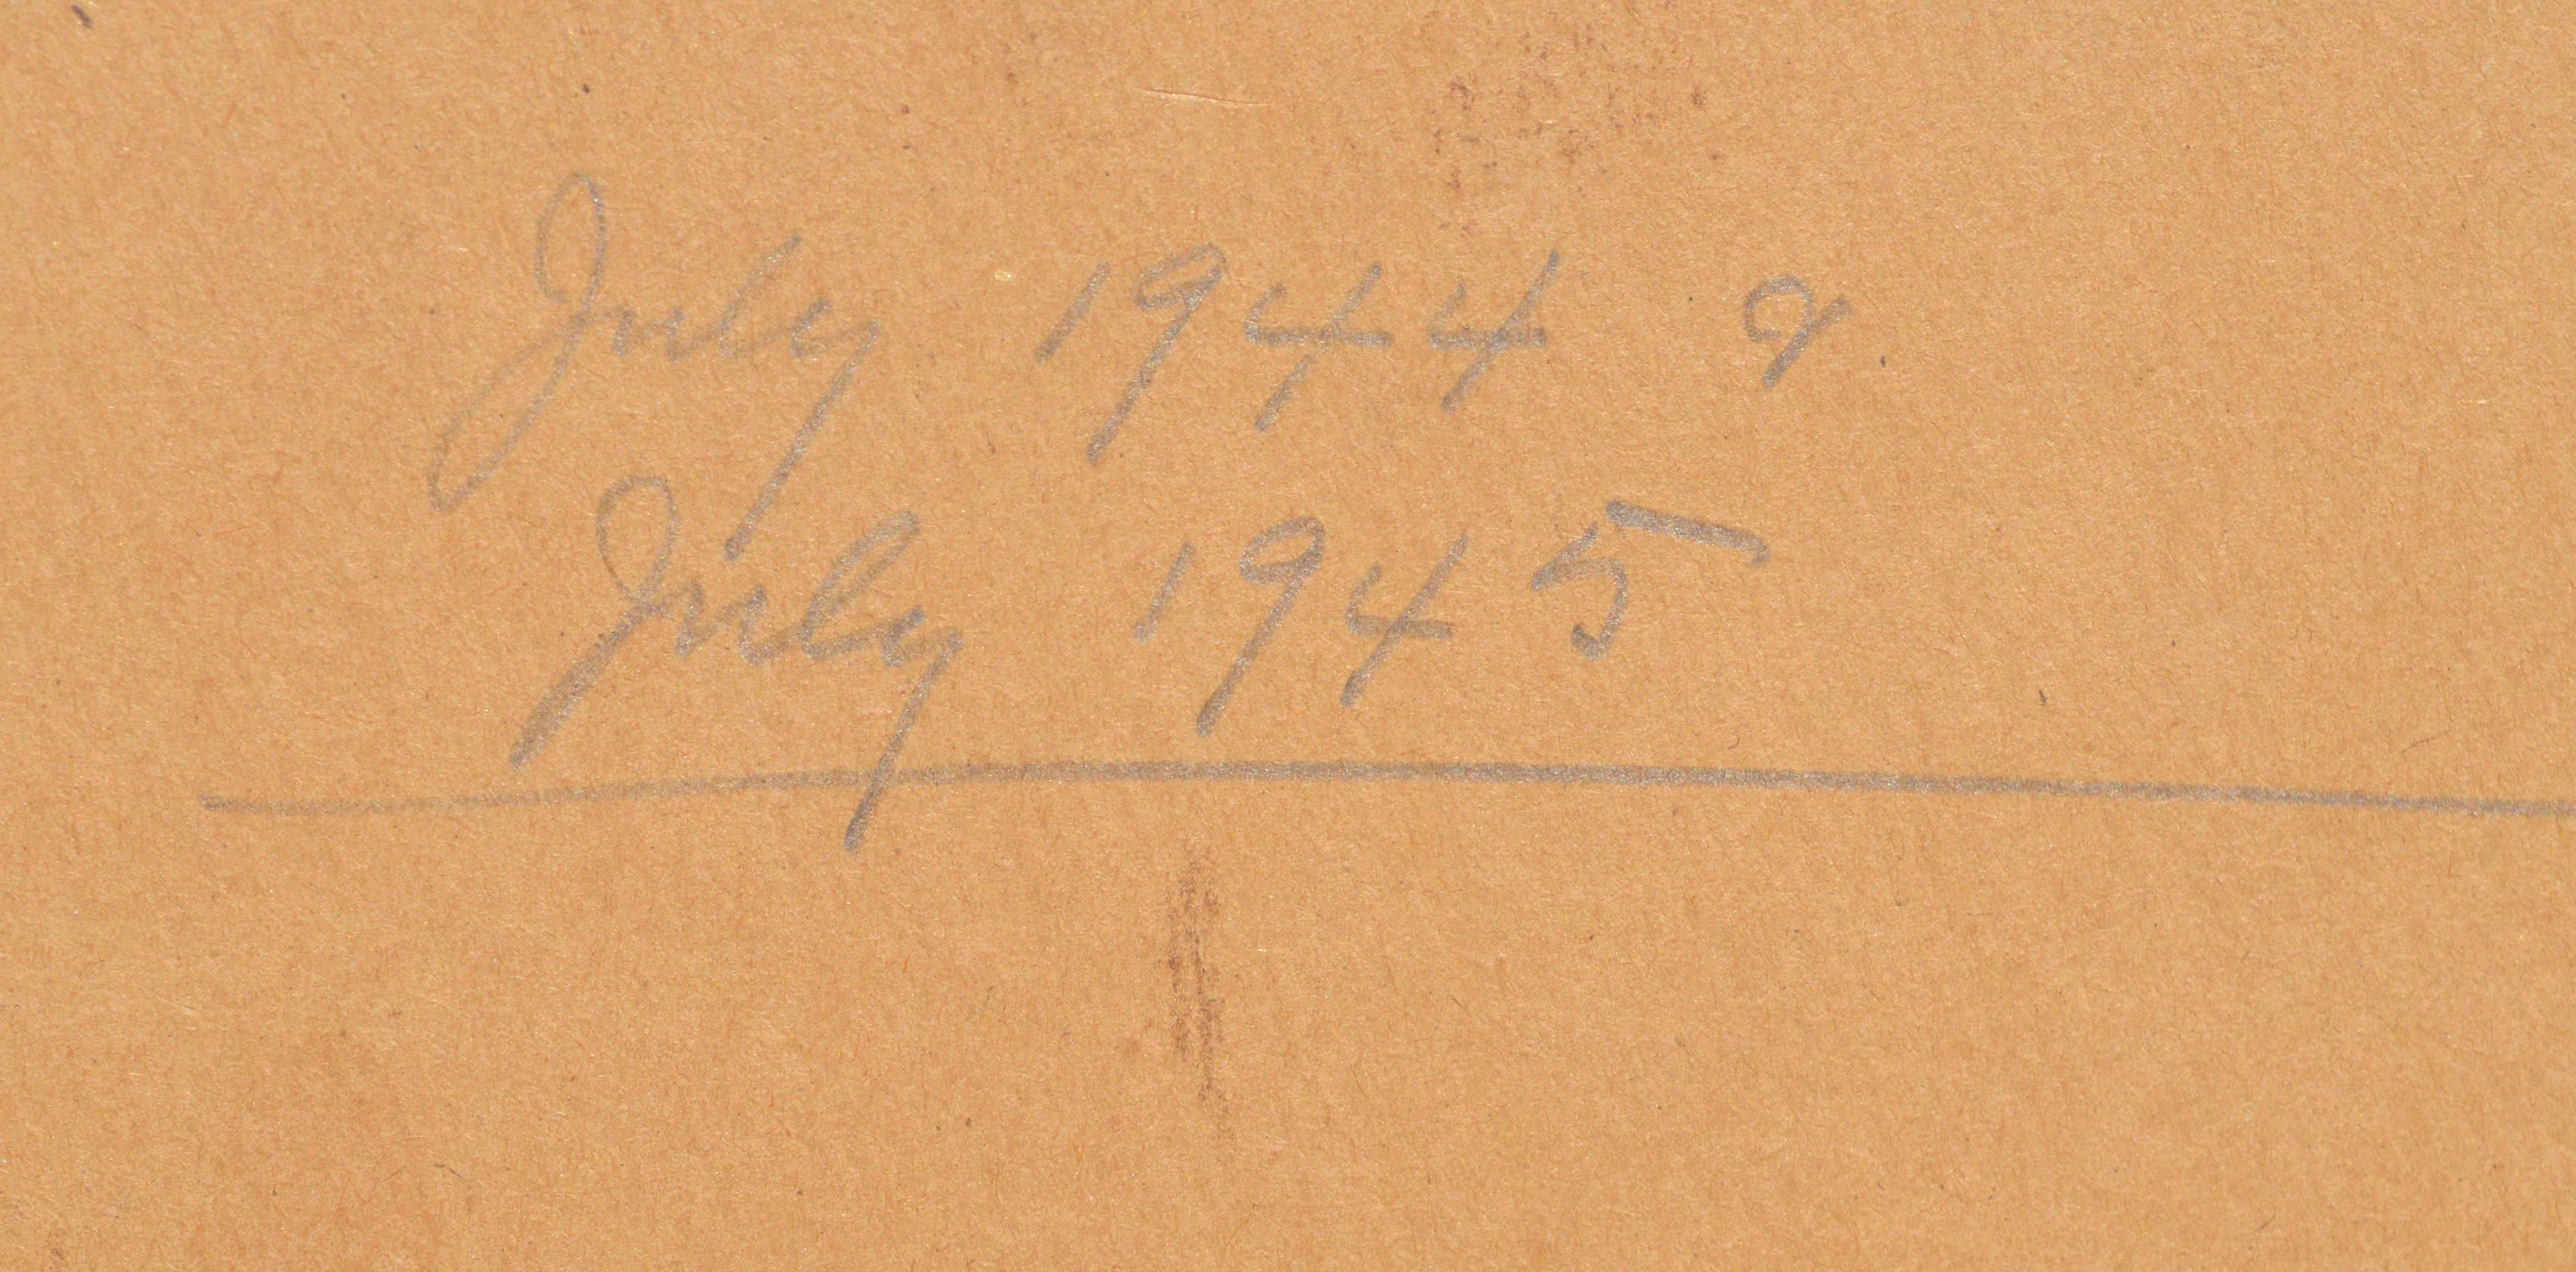 July 1944 &
July 1945